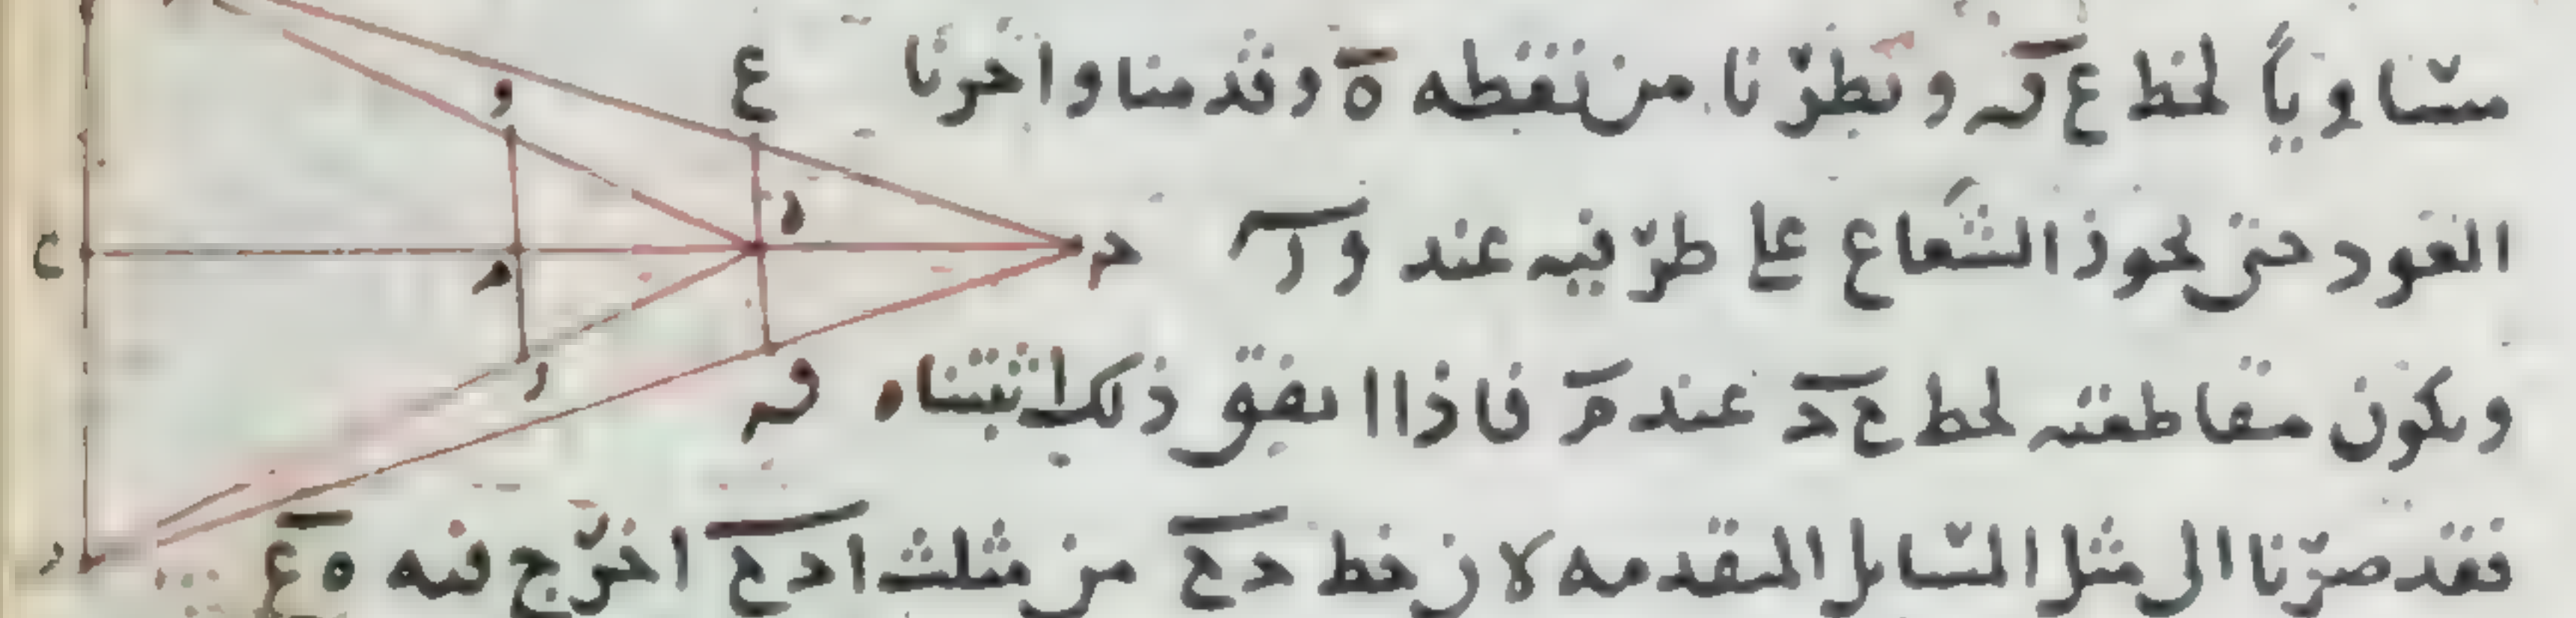 مساوياً لخط ع ف ونظرنا من نقطه ه وقدمنا واخرنا ع و
العود حتى يجوز الشعاع على طرفيه عند و ر ح م د ه
ويكون مقاطعته لخط ح د عند م فاذا اتفق ذلك اثبتناه ف ر
فقد صرنا الى مثل المسايل المتقدمه لان خط د ح من مثلث ا د ح اخرج فيه ه ع